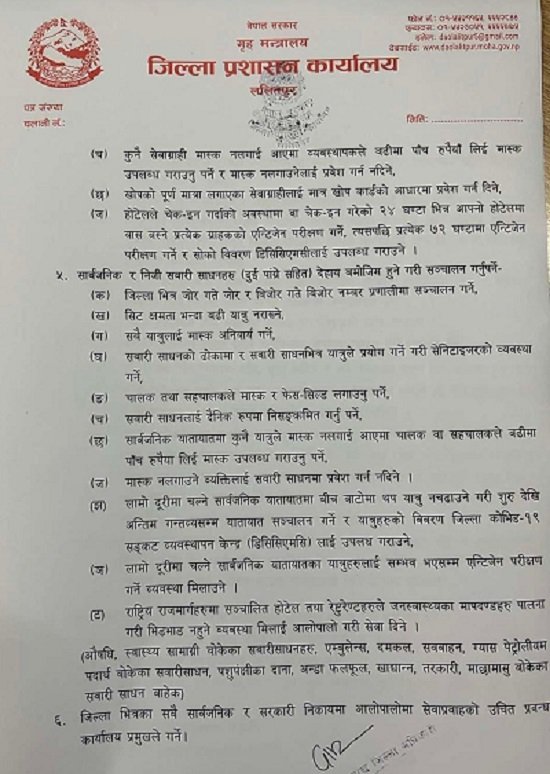 नेपाल सरकार
गृह मन्त्रालय
जिल्ला प्रशासन कार्यालय
ललितपुर
वेबसाईट: www.daolalitpur.moha.gov.np
पत्र संख्या
चलानी नं.:
मिति:
(च) कुनै सेवाग्राही मास्क नलगाई आएमा व्यवस्थापकले बढीमा पाँच रुपैयाँ लिई मास्क
उपलब्ध गराउनु पर्ने र मास्क नलगाउनेलाई प्रवेश गर्न नदिने,
(छ) खोपको पूर्ण मात्रा लगाएका सेवाग्राहीलाई मात्र खोप कार्डको आधारमा प्रवेश गर्न दिने,
(ज) होटेलले चेक-इन गर्दाको अवस्थामा वा चेक-इन गरेको २४ घण्टा भित्र आफ्नो होटेलमा
वास बस्ने प्रत्येक ग्राहकको एन्टिजेन परीक्षण गर्ने, त्यसपछि प्रत्येक ७२ घण्टामा एन्टिजेन
परीक्षण गर्ने र सोको विवरण डिसिसिएमसीलाई उपलब्ध गराउने ।
५. सार्वजनिक र निजी सवारी साधनहरु (दुई पांग्रे सहित) देहाय बमोजिम हुने गरी सञ्चालन गर्नुपर्ने-
(क) जिल्ला भित्र जोर गते जोर र बिजोर गते बिजोर नम्बर प्रणालीमा सञ्चालन गर्ने,
(ख) सिट क्षमता भन्दा बढी यात्रु नराख्ने,
(ग) सबै यात्रुलाई मास्क अनिवार्य गर्ने,
(घ) सवारी साधनको ढोकामा र सवारी साधनभित्र यात्रुले प्रयोग गर्ने गरी सेनिटाइजरको व्यवस्था
गर्ने,
(ङ) चालक तथा सहचालकले मास्क र फेस-सिल्ड लगाउनु पर्ने,
(च) सवारी साधनलाई दैनिक रुपमा निसङ्क्रमित गर्नु पर्ने,
(छ) सार्वजनिक यातायातमा कुनै यात्रुले मास्क नलगाई आएमा चालक वा सहचालकले बढीमा
पाँच रुपैया लिई मास्क उपलब्ध गराउनु पर्ने,
(ज) मास्क नलगाउने व्यक्तिलाई सवारी साधनमा प्रवेश गर्न नदिने ।
(झ) लामो दूरीमा चल्ने सार्वजनिक यातायातमा बीच बाटोमा थप यात्रु नचढाउने गरी शुरु देखि
अन्तिम गन्तव्यसम्म यातायात सञ्चालन गर्ने र यात्रुहरुको विवरण जिल्ला कोभिड-१९
सङ्कट व्यवस्थापन केन्द्र (डिसिसिएमसि) लाई उपलब्ध गराउने,
(ञ) लामो दूरीमा चल्ने सार्वजनिक यातायातका यात्रुहरुलाई सम्भव भएसम्म एन्टिजेन परीक्षण
गर्ने व्यवस्था मिलाउने ।
(ट) राष्ट्रिय राजमार्गहरुमा सञ्चालित होटेल तथा रेष्टुरेण्टहरुले जनस्वास्थ्यका मापदण्डहरु पालना
गरी भिडभाड नहुने व्यवस्था मिलाई आलोपालो गरी सेवा दिने ।
(औषधि, स्वास्थ्य सामाग्री बोकेका सवारीसाधनहरु, एम्बुलेन्स, दमकल, सबबाहन, ग्यास पेट्रोलीयम
पदार्थ बोकेका सवारीसाधन, पशुपंक्षीका दाना, अन्डा फलफूल, खाद्यान्न, तरकारी, माछामासु बोकेका
सवारी साधन बाहेक)
६. जिल्ला भित्रका सबै सार्वजनिक र सरकारी निकायमा आलोपालोमा सेवाप्रवाहको उचित प्रबन्ध
कार्यालय प्रमुखले गर्ने।